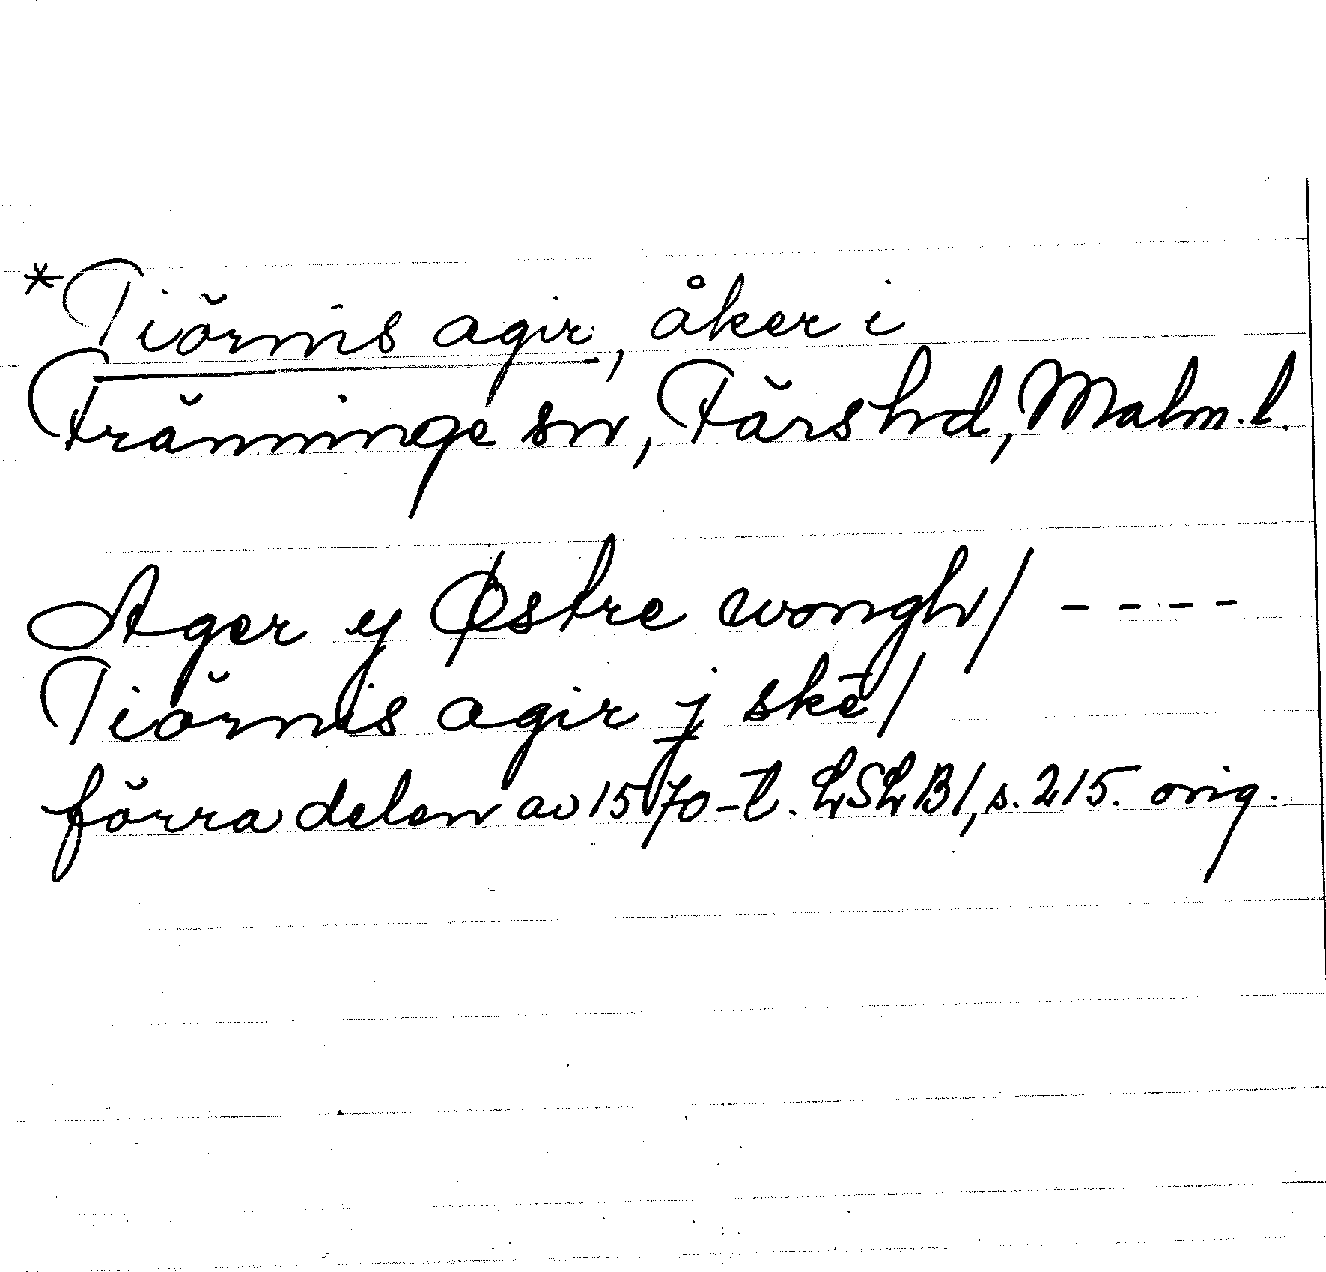 *Tiörnis agir, åker i
Tränninge sn, Färs hd, Malm. l.
Ager y Østre wongh/ ----
Tiörnis agir j skē/
förra delen av 1570-t. LSLB1, s. 215. orig.